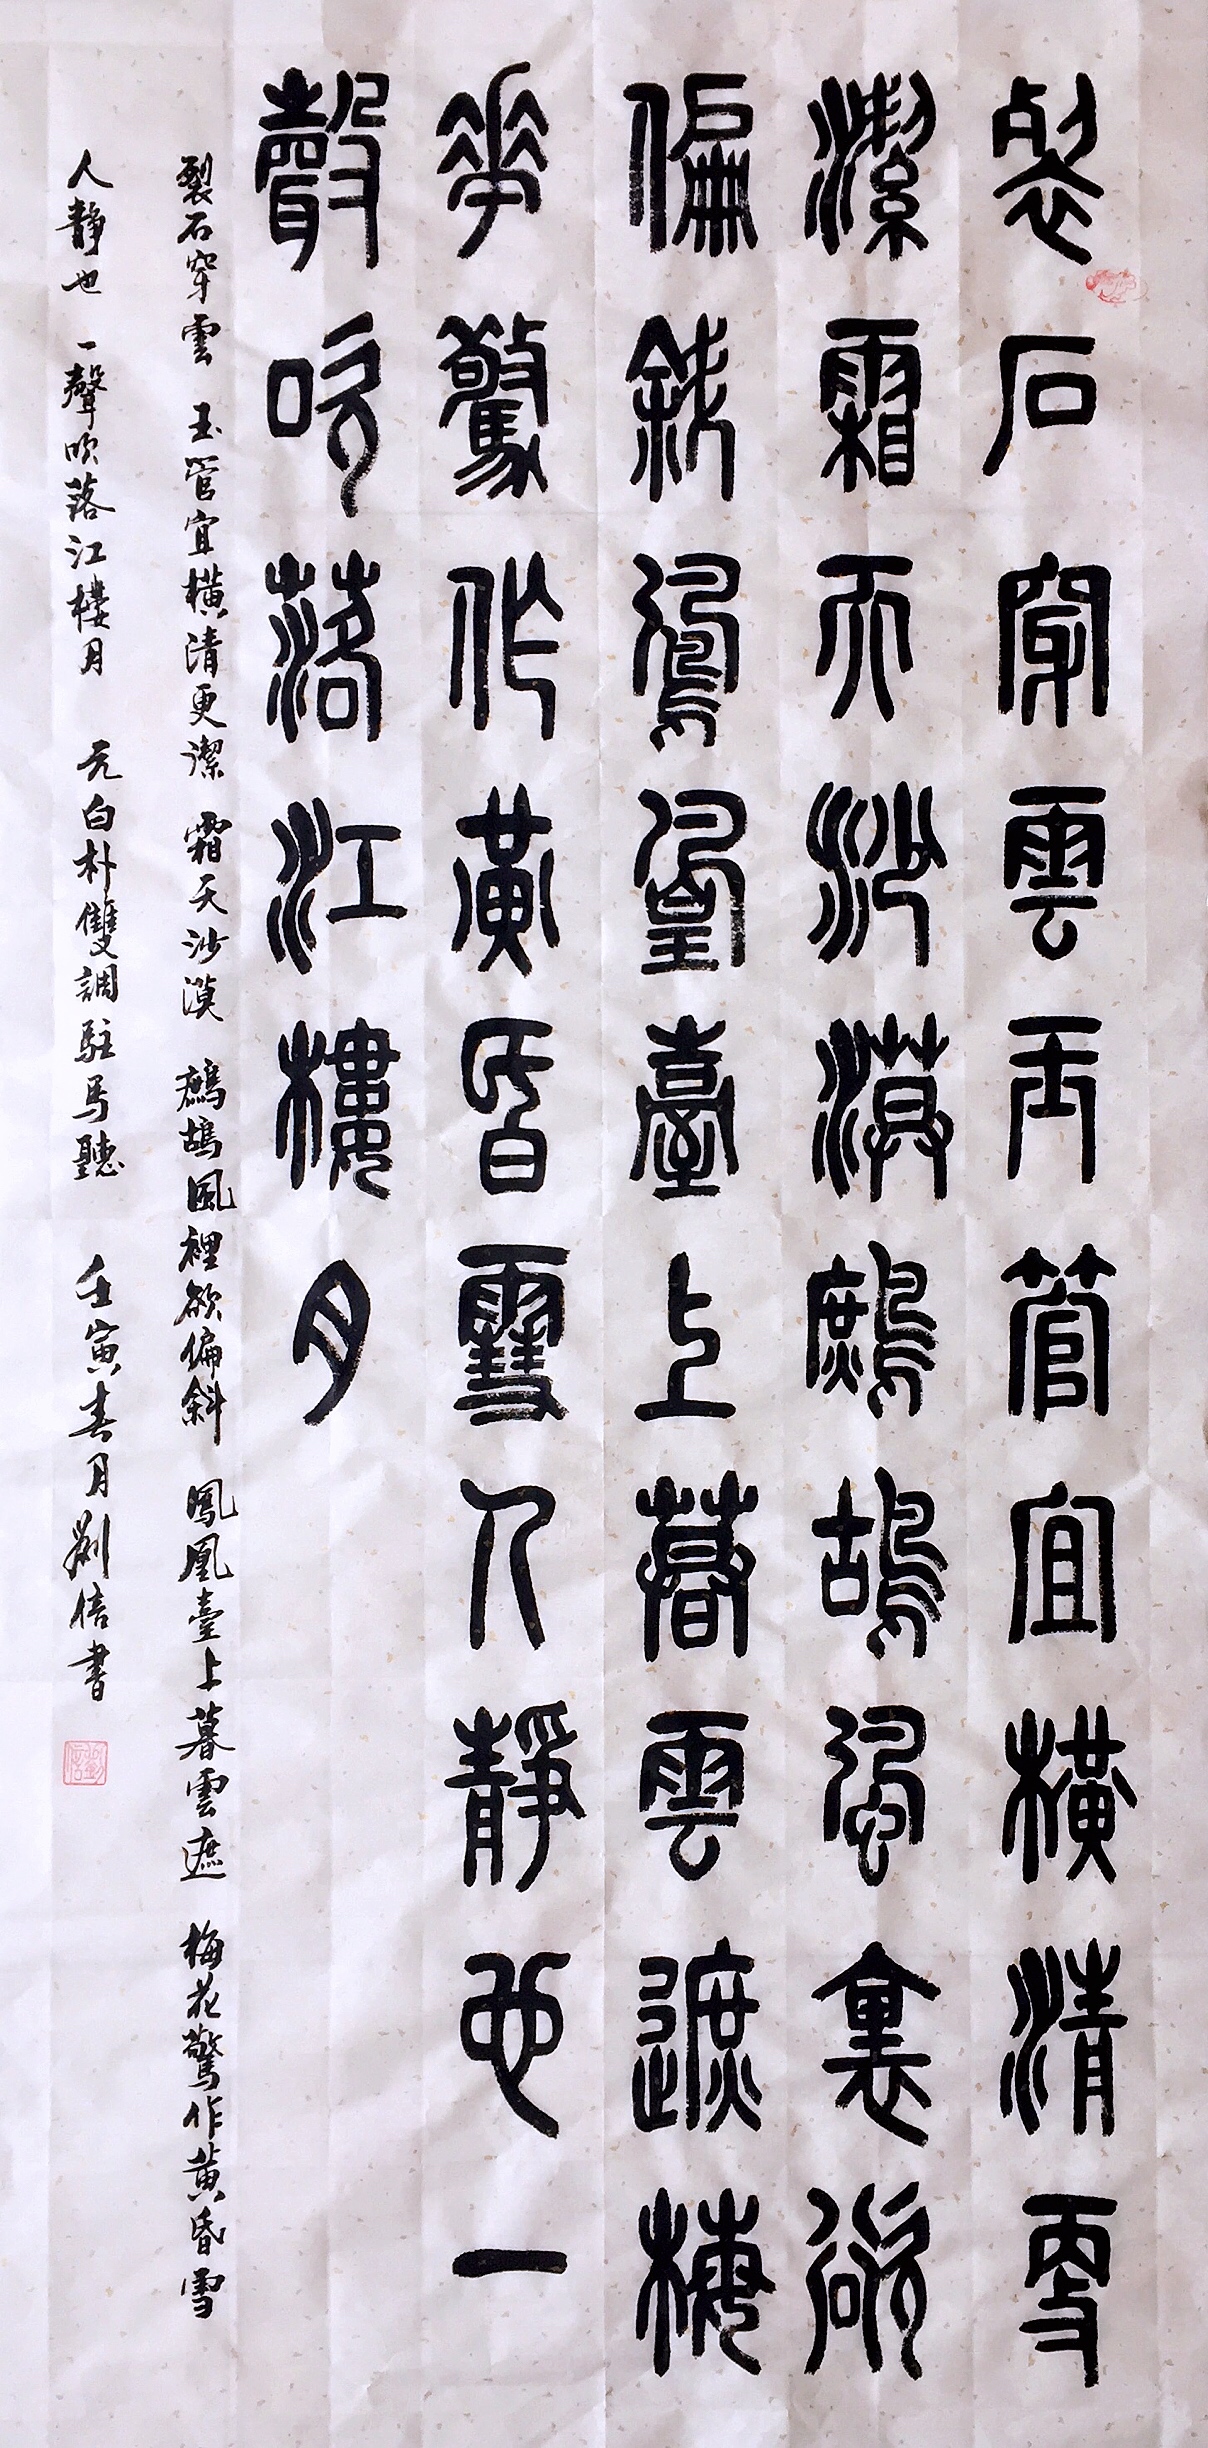 裂石穿雲玉管宜橫清更
潔霜天沙漠鷓鴣風裏欲
偏斜鳳凰臺上暮雲遮梅
華驚作黃昏雪人靜也一
聲吹落江樓月
裂石穿雲 玉管宜橫清更潔 霜天沙漠 鷓鴣風裡欲偏斜 鳳凰臺上暮雲遮 梅花驚作黃昏雪
人靜也 一聲吹落江樓月 元白朴雙調駐馬聽 壬寅春月劉信書
劉信